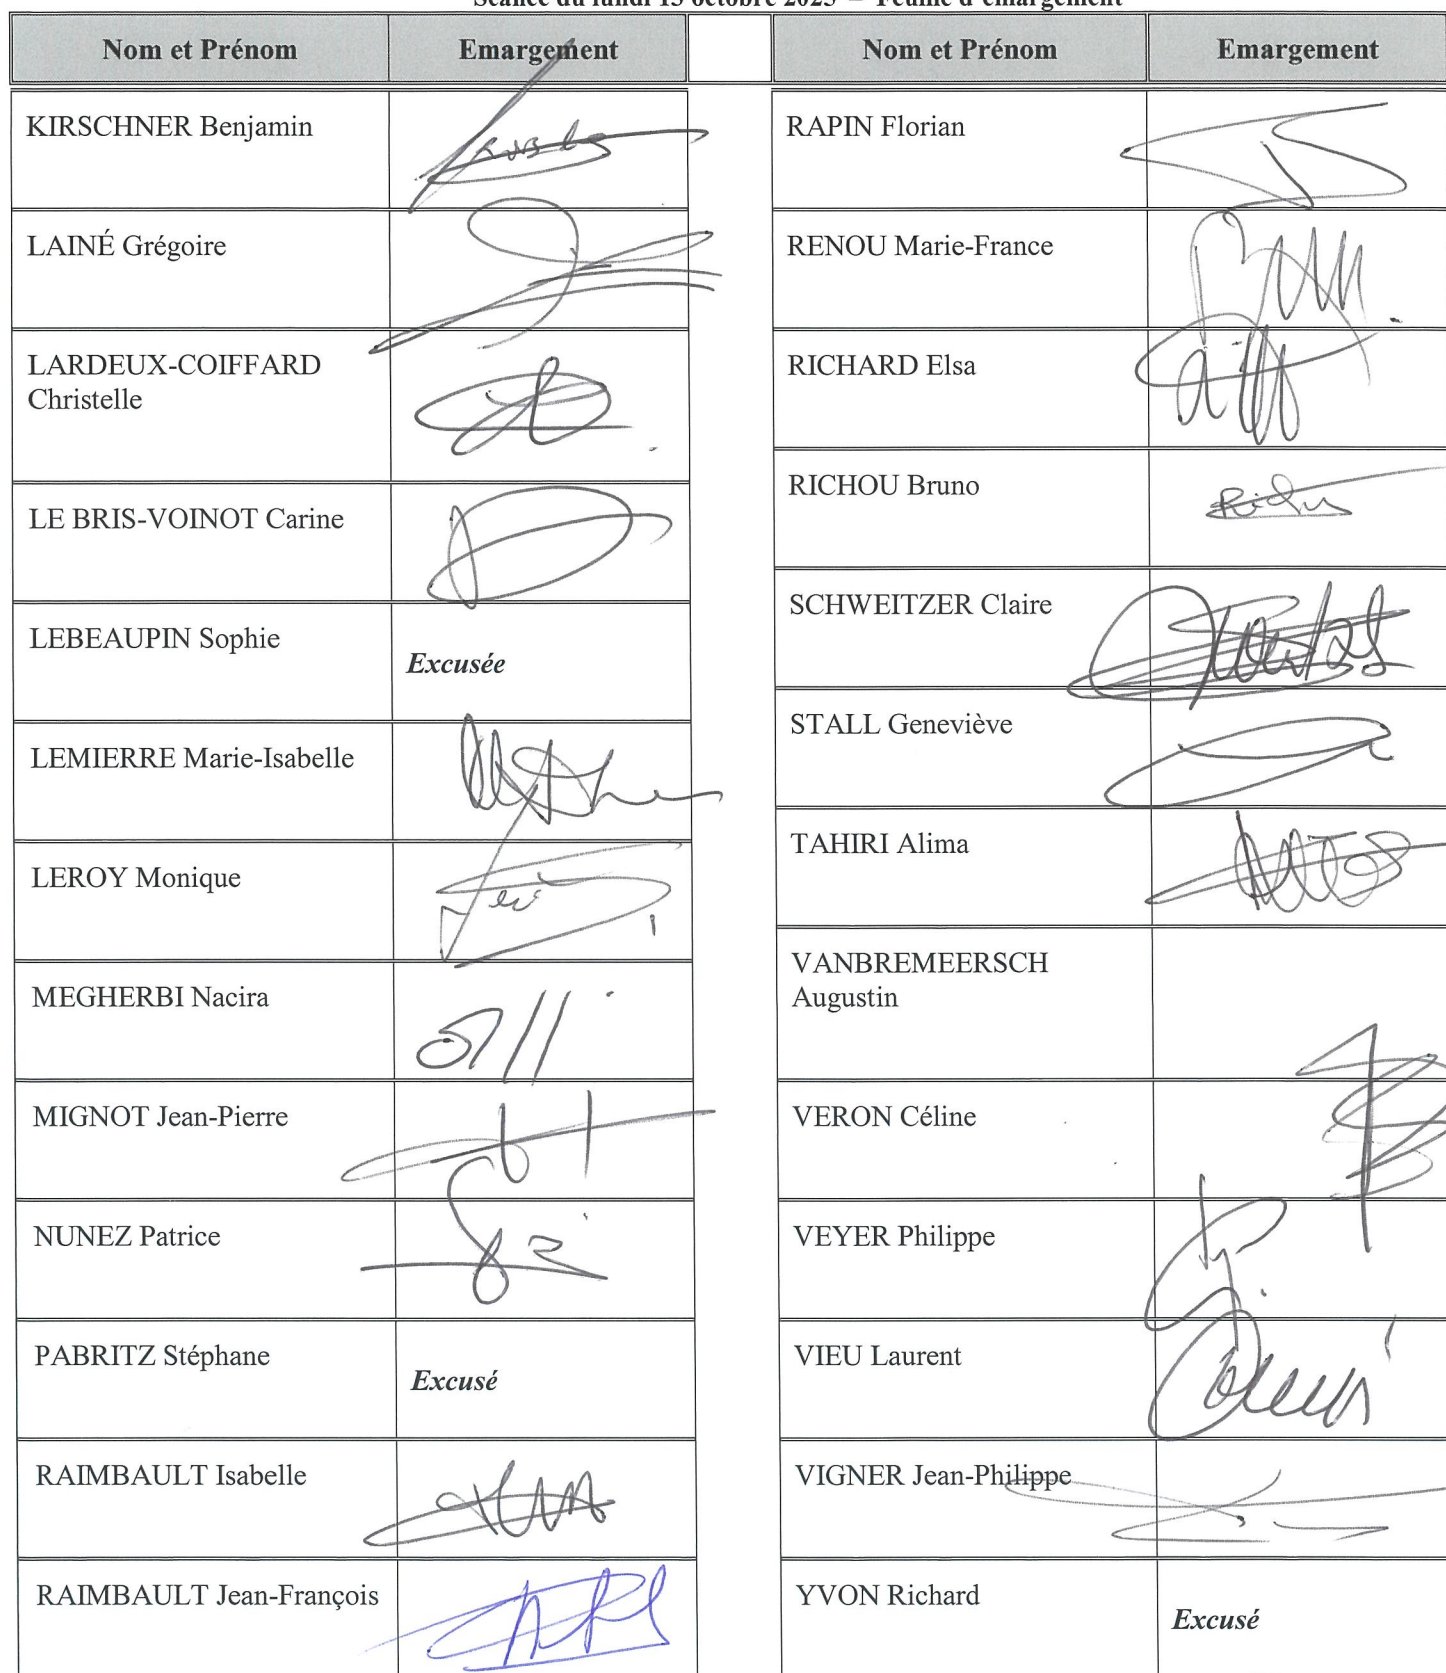 Séance du lundi 13 octobre 2025 – Feuille d'émargement
Nom et Prénom Emargement
KIRSCHNER Benjamin
LAINÉ Grégoire
LARDEUX-COIFFARD
Christelle
LE BRIS-VOINOT Carine
LEBEAUPIN Sophie
Excusée
LEMIERRE Marie-Isabelle
LEROY Monique
MEGHERBI Nacira
MIGNOT Jean-Pierre
NUNEZ Patrice
PABRITZ Stéphane
Excusé
RAIMBAULT Isabelle
RAIMBAULT Jean-François
Nom et Prénom Emargement
RAPIN Florian
RENOU Marie-France
RICHARD Elsa
RICHOU Bruno
SCHWEITZER Claire
STALL Geneviève
TAHIRI Alima
VANBREMEERSCH
Augustin
VERON Céline
VEYER Philippe
VIEU Laurent
VIGNER Jean-Philippe
YVON Richard
Excusé